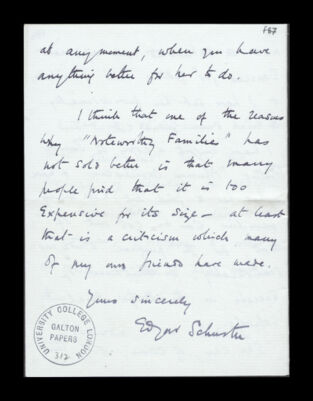 187
at any moment, when you have
anything better for her to do.
I think that one of the reasons
why "Noteworthy Families" has
not sold better is that many
people find that it is too
expensive for its size – at least
that is a criticism which many
of my own friends have made.
Yours sincerely
Edgar Schuster
UNIVERSITY COLLEGE LONDON
GALTON
PAPERS
312